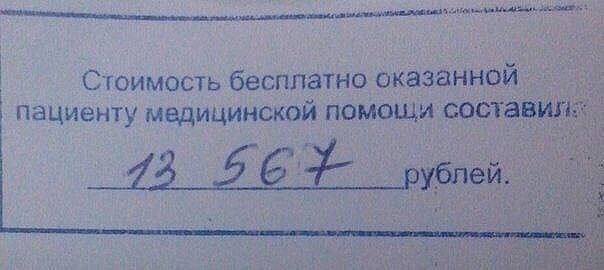 Стоимость бесплатно оказанной
пациенту медицинской помощи составила
13 567 рублей.